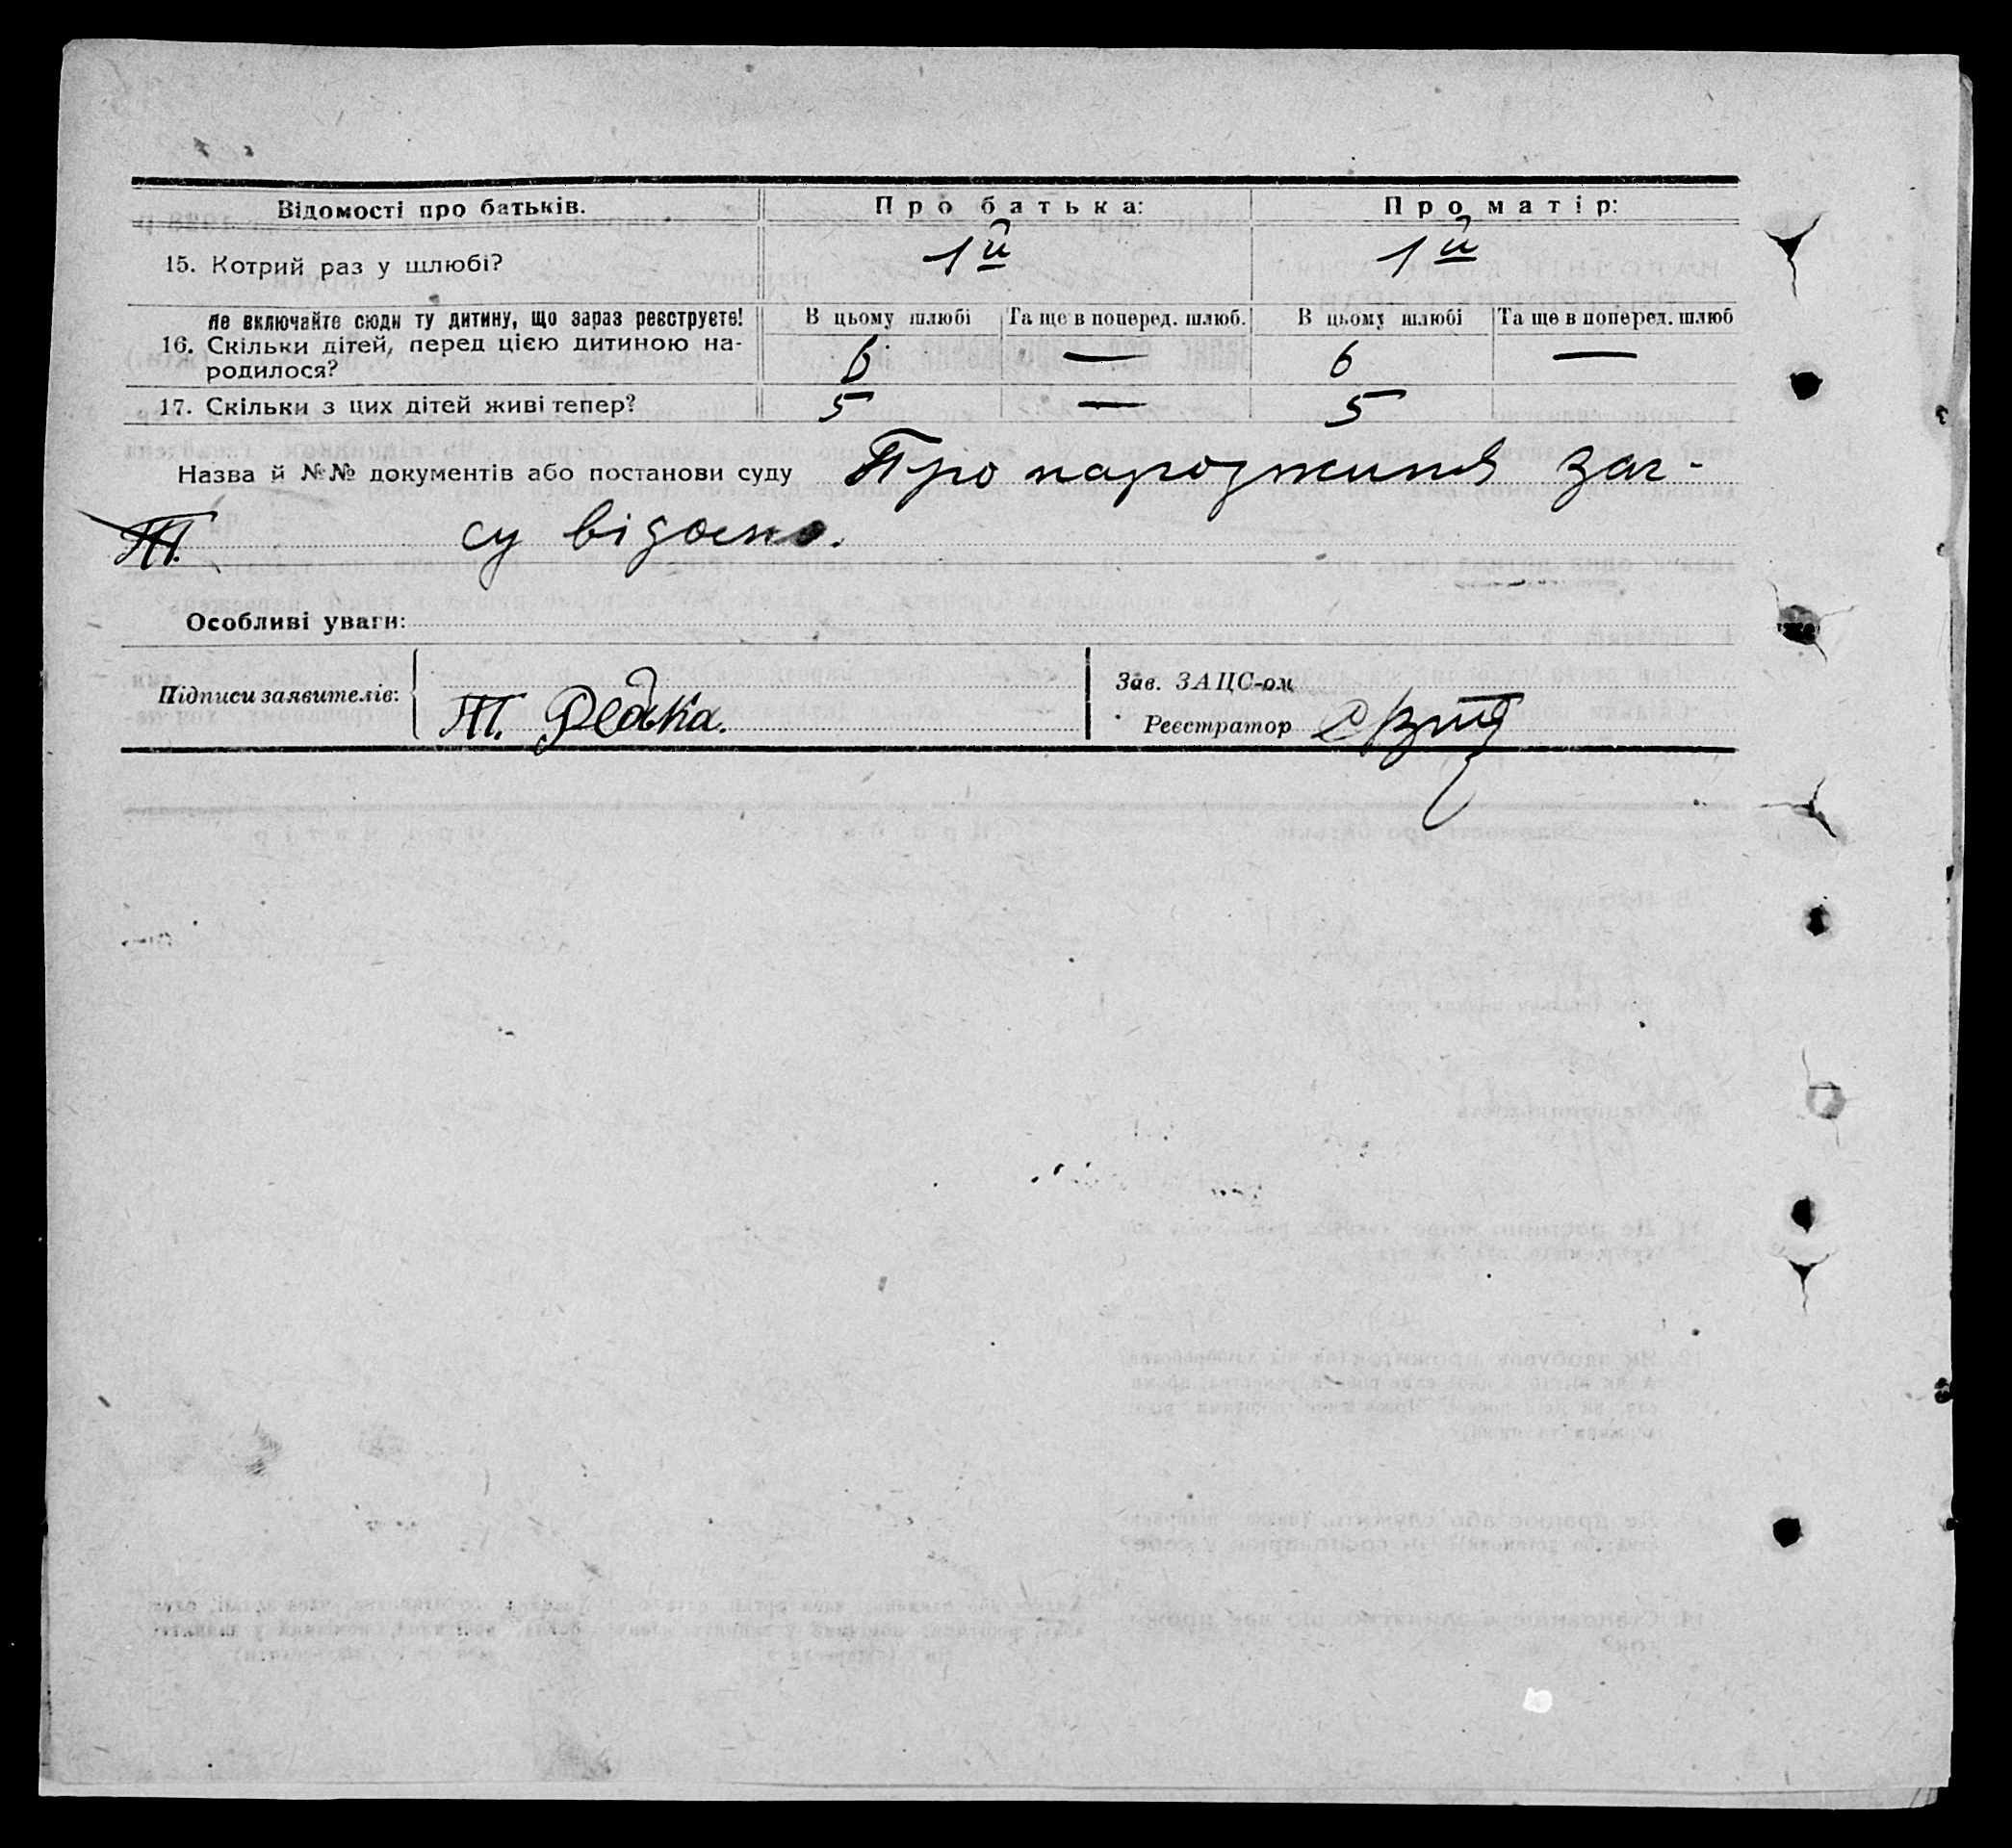 Відомості про батьків. Про батька: Про матір:
15. Котрий раз у шлюбі? 1й 1й
Не включайте сюди ту дитину, що зараз реєструєте! В цьому шлюбі Та ще в поперед. шлюб. В цьому шлюбі Та ще в поперед. шлюб
16. Скільки дітей, перед цією дитиною на-
родилося? 6 — 6 —
17. Скільки з цих дітей живі тепер? 5 — 5
Назва й №№ документів або постанови суду Про народження заг-
су відомо.
Особливі уваги:
Підписи заявителів: Т. Редька.
Зав. ЗАЦС-ом
Реєстратор